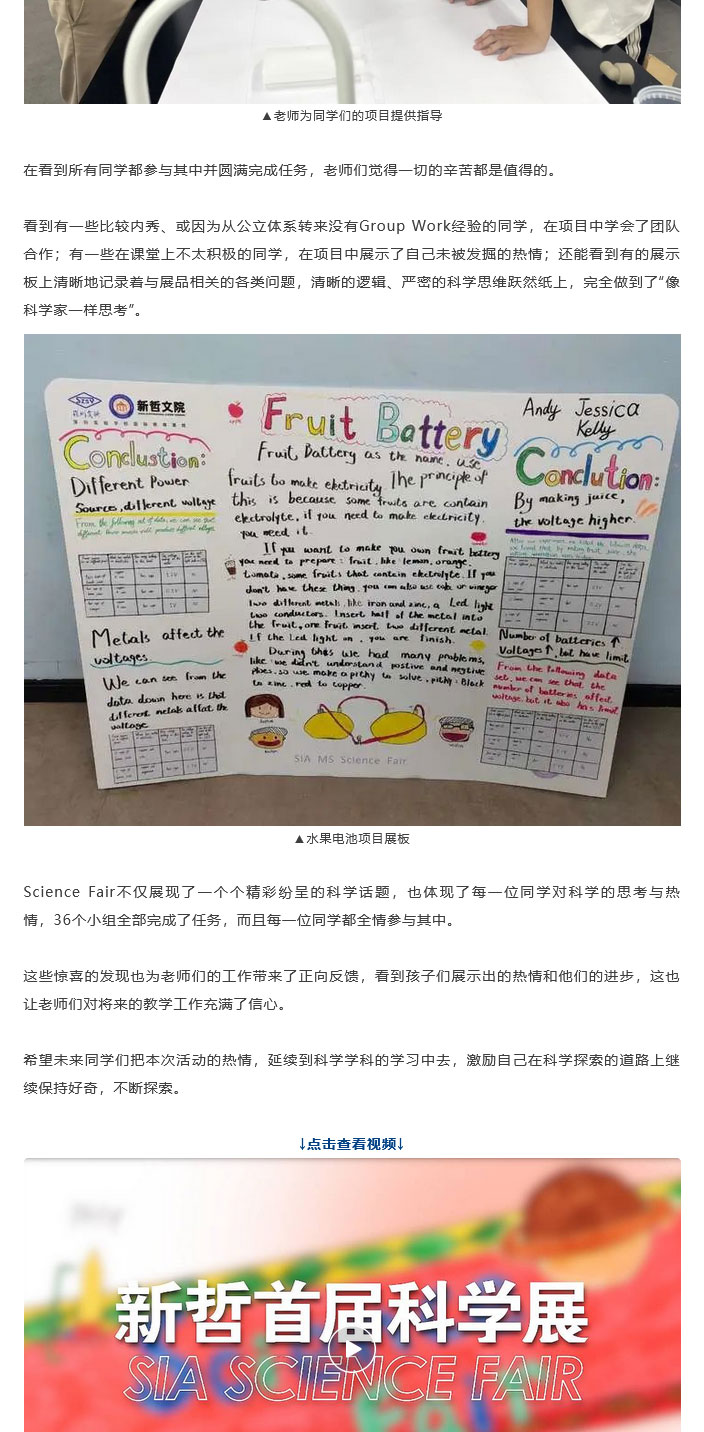 ▲老师为同学们的项目提供指导
在看到所有同学都参与其中并圆满完成任务，老师们觉得一切的辛苦都是值得的。
看到有一些比较内秀、或因为从公立体系转来没有Group Work经验的同学，在项目中学会了团队
合作；有一些在课堂上不太积极的同学，在项目中展示了自己未被发掘的热情；还能看到有的展示
板上清晰地记录着与展品相关的各类问题，清晰的逻辑、严密的科学思维跃然纸上，完全做到了“像
科学家一样思考”。
新哲文院
Conclustion:
Different Power
Sources, different voltage
Metals affect the
voltages.
We can see from the
data down here is that
different metals affect the
voltage
Fruit Battery
Fruit Dattery as the name, use
fruits to make ektricity. The principle of
this is because some fruits are contain
electrolyte, if you need to make electricity.
you need it.
If you want to make you own fruit battery
you need to prepare: fruit, like lemon, orange.
tomato, some fruits that contain electrolyte. If you
don't have these thing, you can also use cola or vinegar
two different metals, like iron and zinc, a Led light
two conductors. Insert half of the metal into
the fruit, one fruit insert two different metal.
If the Led light on, you are finish.
During this we had many problems,
like we didn't understand postive and negtive
ploes, so we make a pithy to solve, pithy: Black
to zinc, red to copper.
SIA MS Science Fair
Andy Jessica
Kelly
Conclution:
By making juice,
the voltage higher.
Number of batteries ↑
Voltage ↑, but have limit
From the following data
set, we can see that the
number of batteries affect
voltage, but it also has limit
▲水果电池项目展板
Science Fair不仅展现了一个个精彩纷呈的科学话题，也体现了每一位同学对科学的思考与热
情，36个小组全部完成了任务，而且每一位同学都全情参与其中。
这些惊喜的发现也为老师们的工作带来了正向反馈，看到孩子们展示出的热情和他们的进步，这也
让老师们对将来的教学工作充满了信心。
希望未来同学们把本次活动的热情，延续到科学学科的学习中去，激励自己在科学探索的道路上继
续保持好奇，不断探索。
↓点击查看视频↓
新哲首届科学展
SIA SCIENCE FAIR